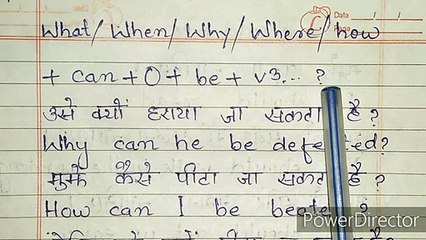 What / When / Why / Where / how
+ can + O + be + v3... ?
उसे क्यों हराया जा सकता है ?
Why can he be defeated?
मुझे कैसे पीटा जा सकता है ?
How can I be beaten ?
PowerDirector